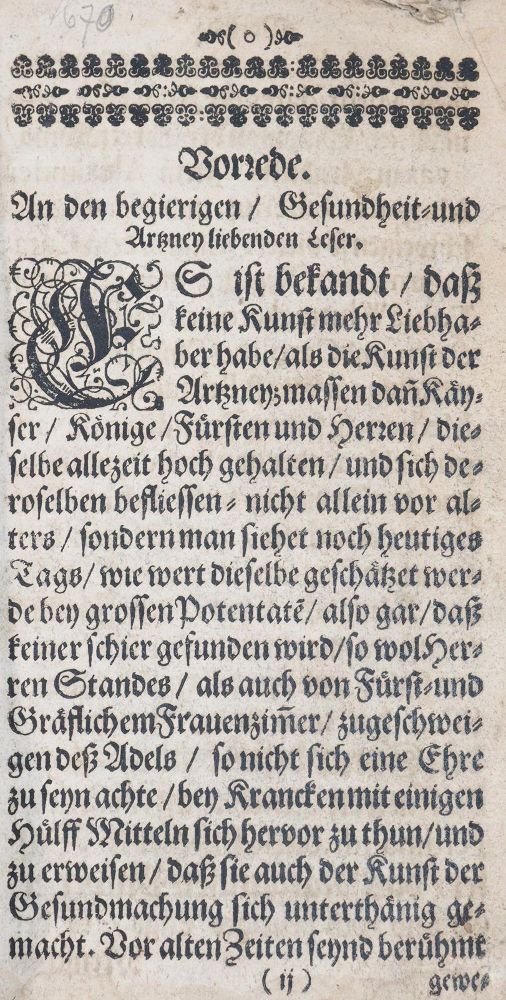 1670
( o )
Vorrede.
An den begierigen / Gesundheit-und
Artzney liebenden Leser.
ES ist bekandt / daß
keine Kunst mehr Liebha-
ber habe/als die Kunst der
Artzney; massen dañ Käy-
ser / Könige / Fürsten und Herren / die-
selbe allezeit hoch gehalten / und sich de-
roselben befliessen- nicht allein vor al-
ters / sondern man siehet noch heutiges
Tags/ wie wert dieselbe geschätzet wer-
de bey grossen Potentatẽ/ also gar/daß
keiner schier gefunden wird/so wol Her-
ren Standes / als auch von Fürst-und
Gräflichem Frauenzim̃er/ zugeschwei-
gen deß Adels / so nicht sich eine Ehre
zu seyn achte / bey Krancken mit einigen
Hülff Mitteln sich hervor zu thun/und
zu erweisen / daß sie auch der Kunst der
Gesundmachung sich unterthänig ge-
macht. Vor alten Zeiten seynd berühmt
( ij )
gewe-